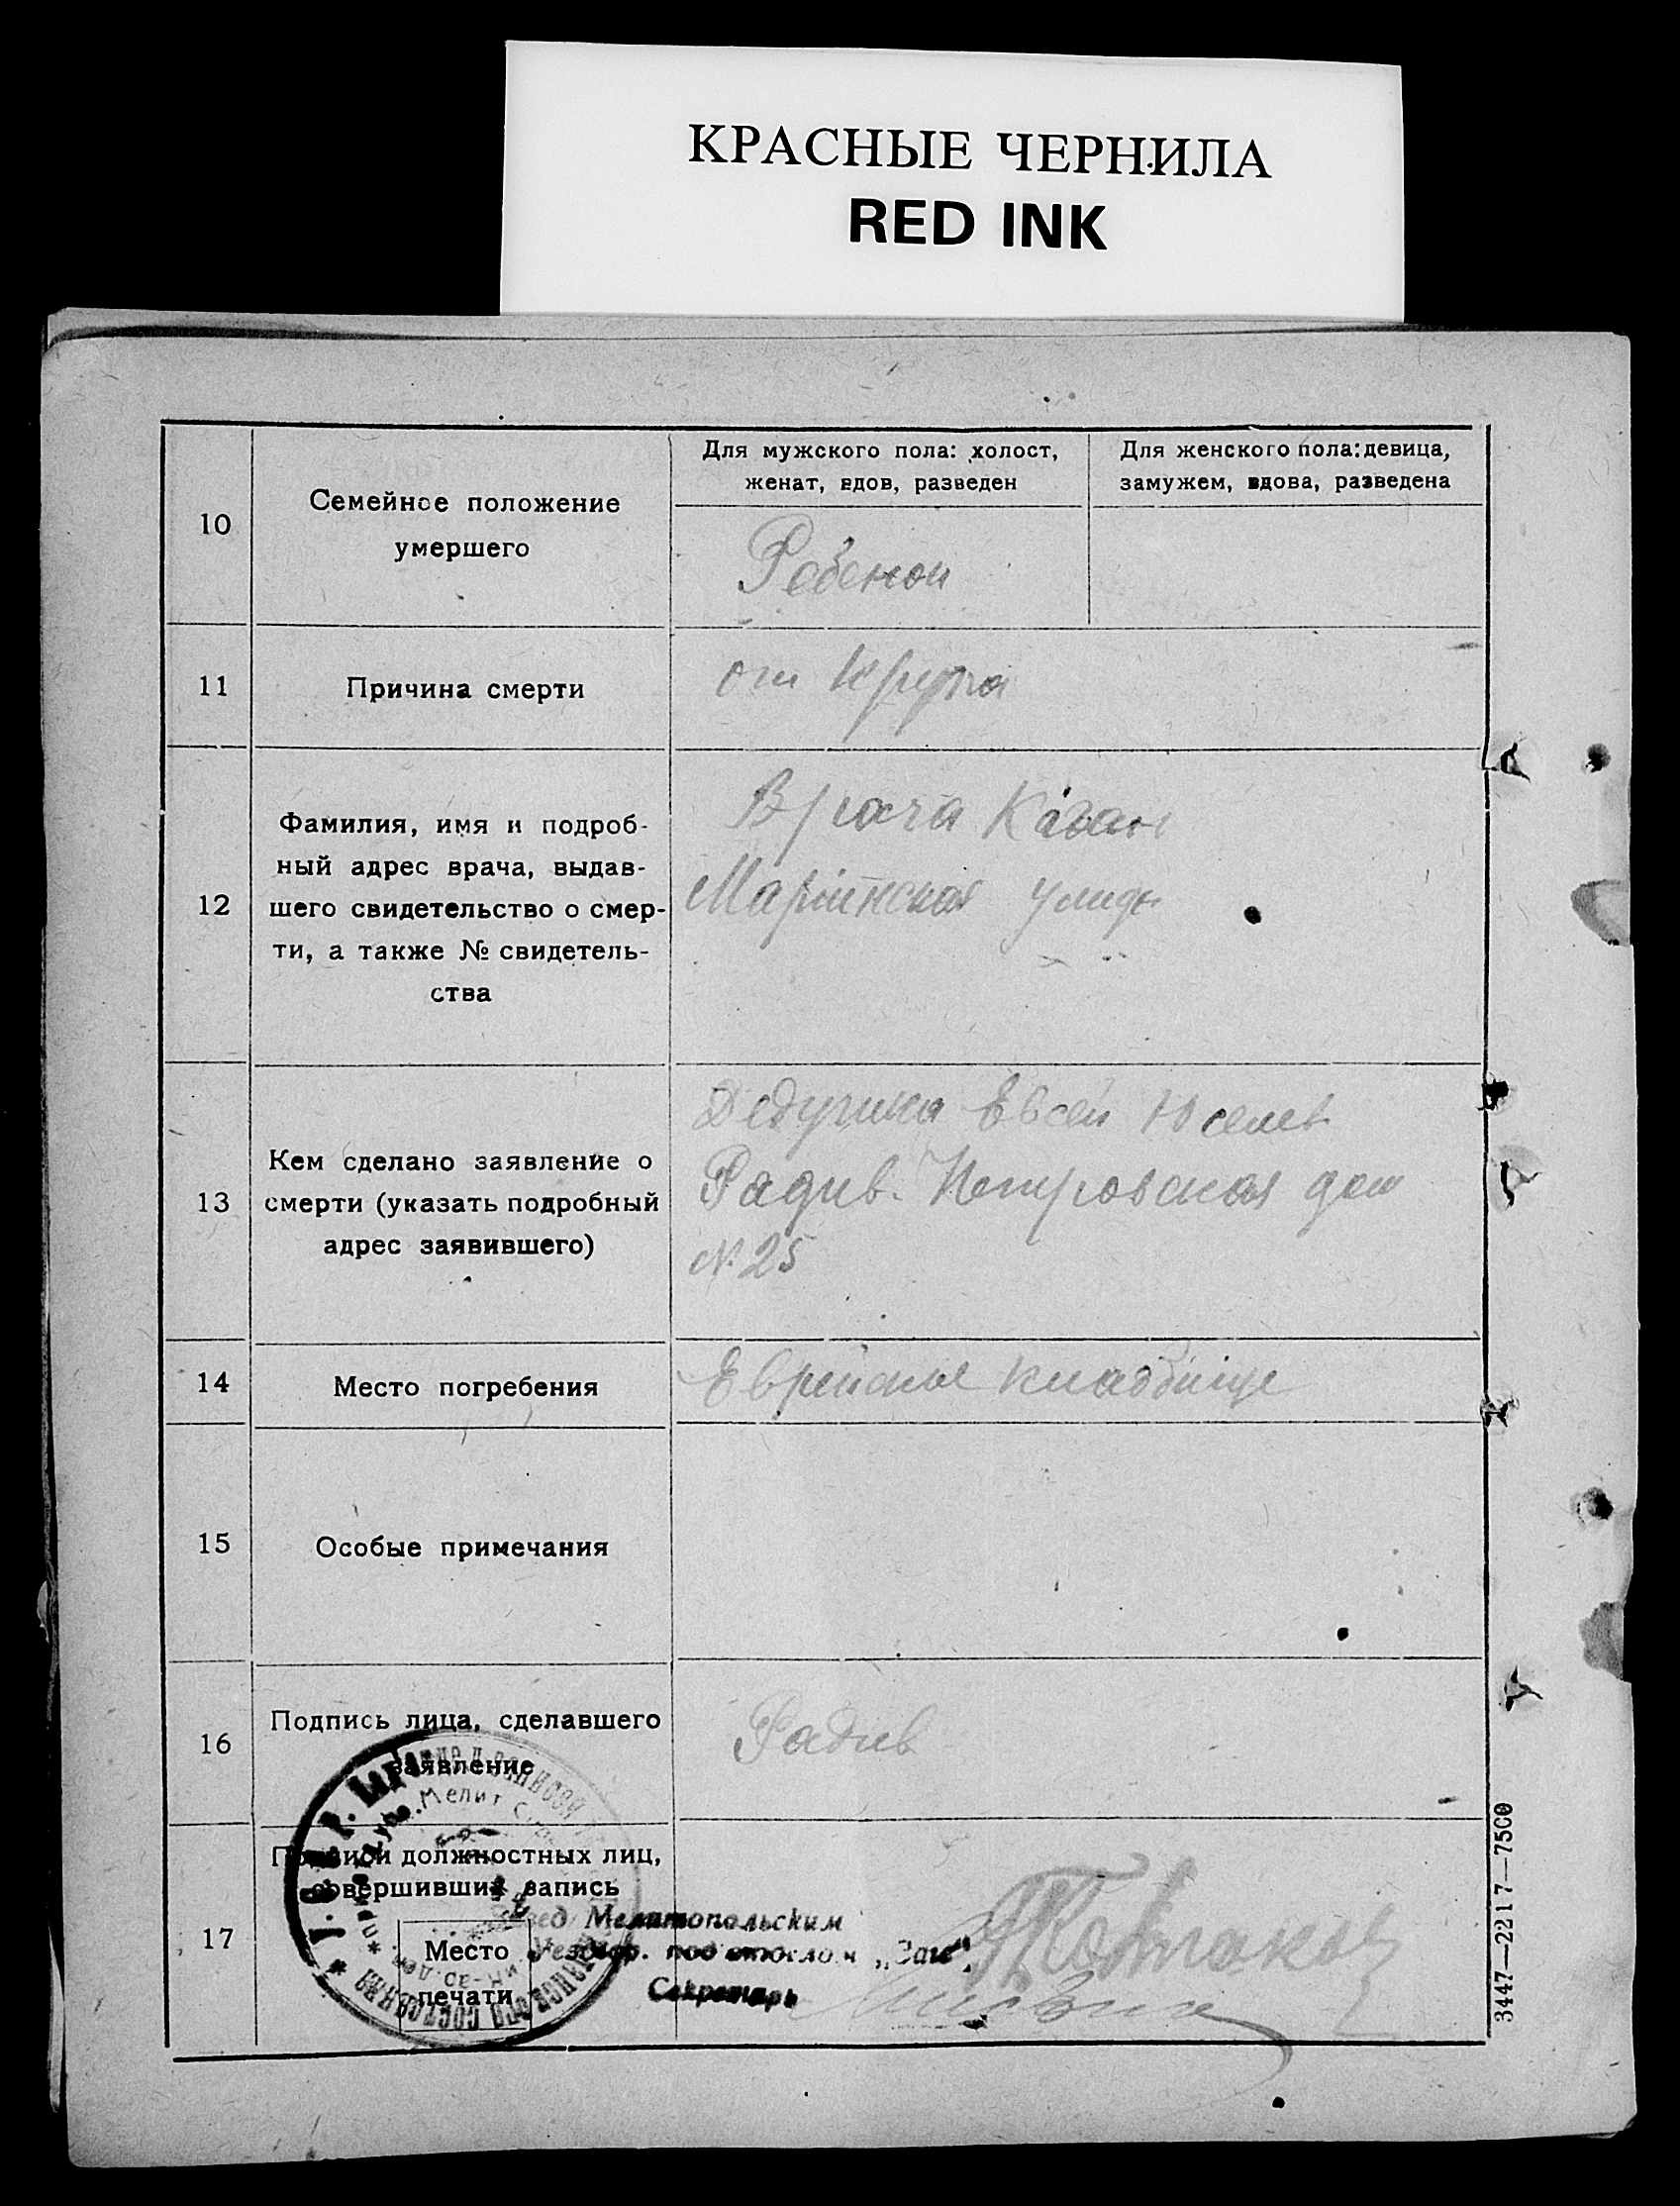 КРАСНЫЕ ЧЕРНИЛА
RED INK
10
Семейное положение
умершего
Для мужского пола: холост,
женат, вдов, разведен
Для женского пола: девица,
замужем, вдова, разведена
Ребенок
11
Причина смерти
от крупа
12
Фамилия, имя и подроб-
ный адрес врача, выдав-
шего свидетельство о смер-
ти, а также № свидетель-
ства
Врача Каган
Мариинская улица
13
Кем сделано заявление о
смерти (указать подробный
адрес заявившего)
Дедушка Евсей Юселев
Радив. Петровская дом
№ 25
14
Место погребения
Еврейское кладбище
15
Особые примечания
16
Подпись лица, сделавшего
заявление
Радив
17
Подписи должностных лиц,
совершивших запись
Место
печати
Завед Мелитопольским
под отделом „Загс“
Секретарь
3447—2217—7500